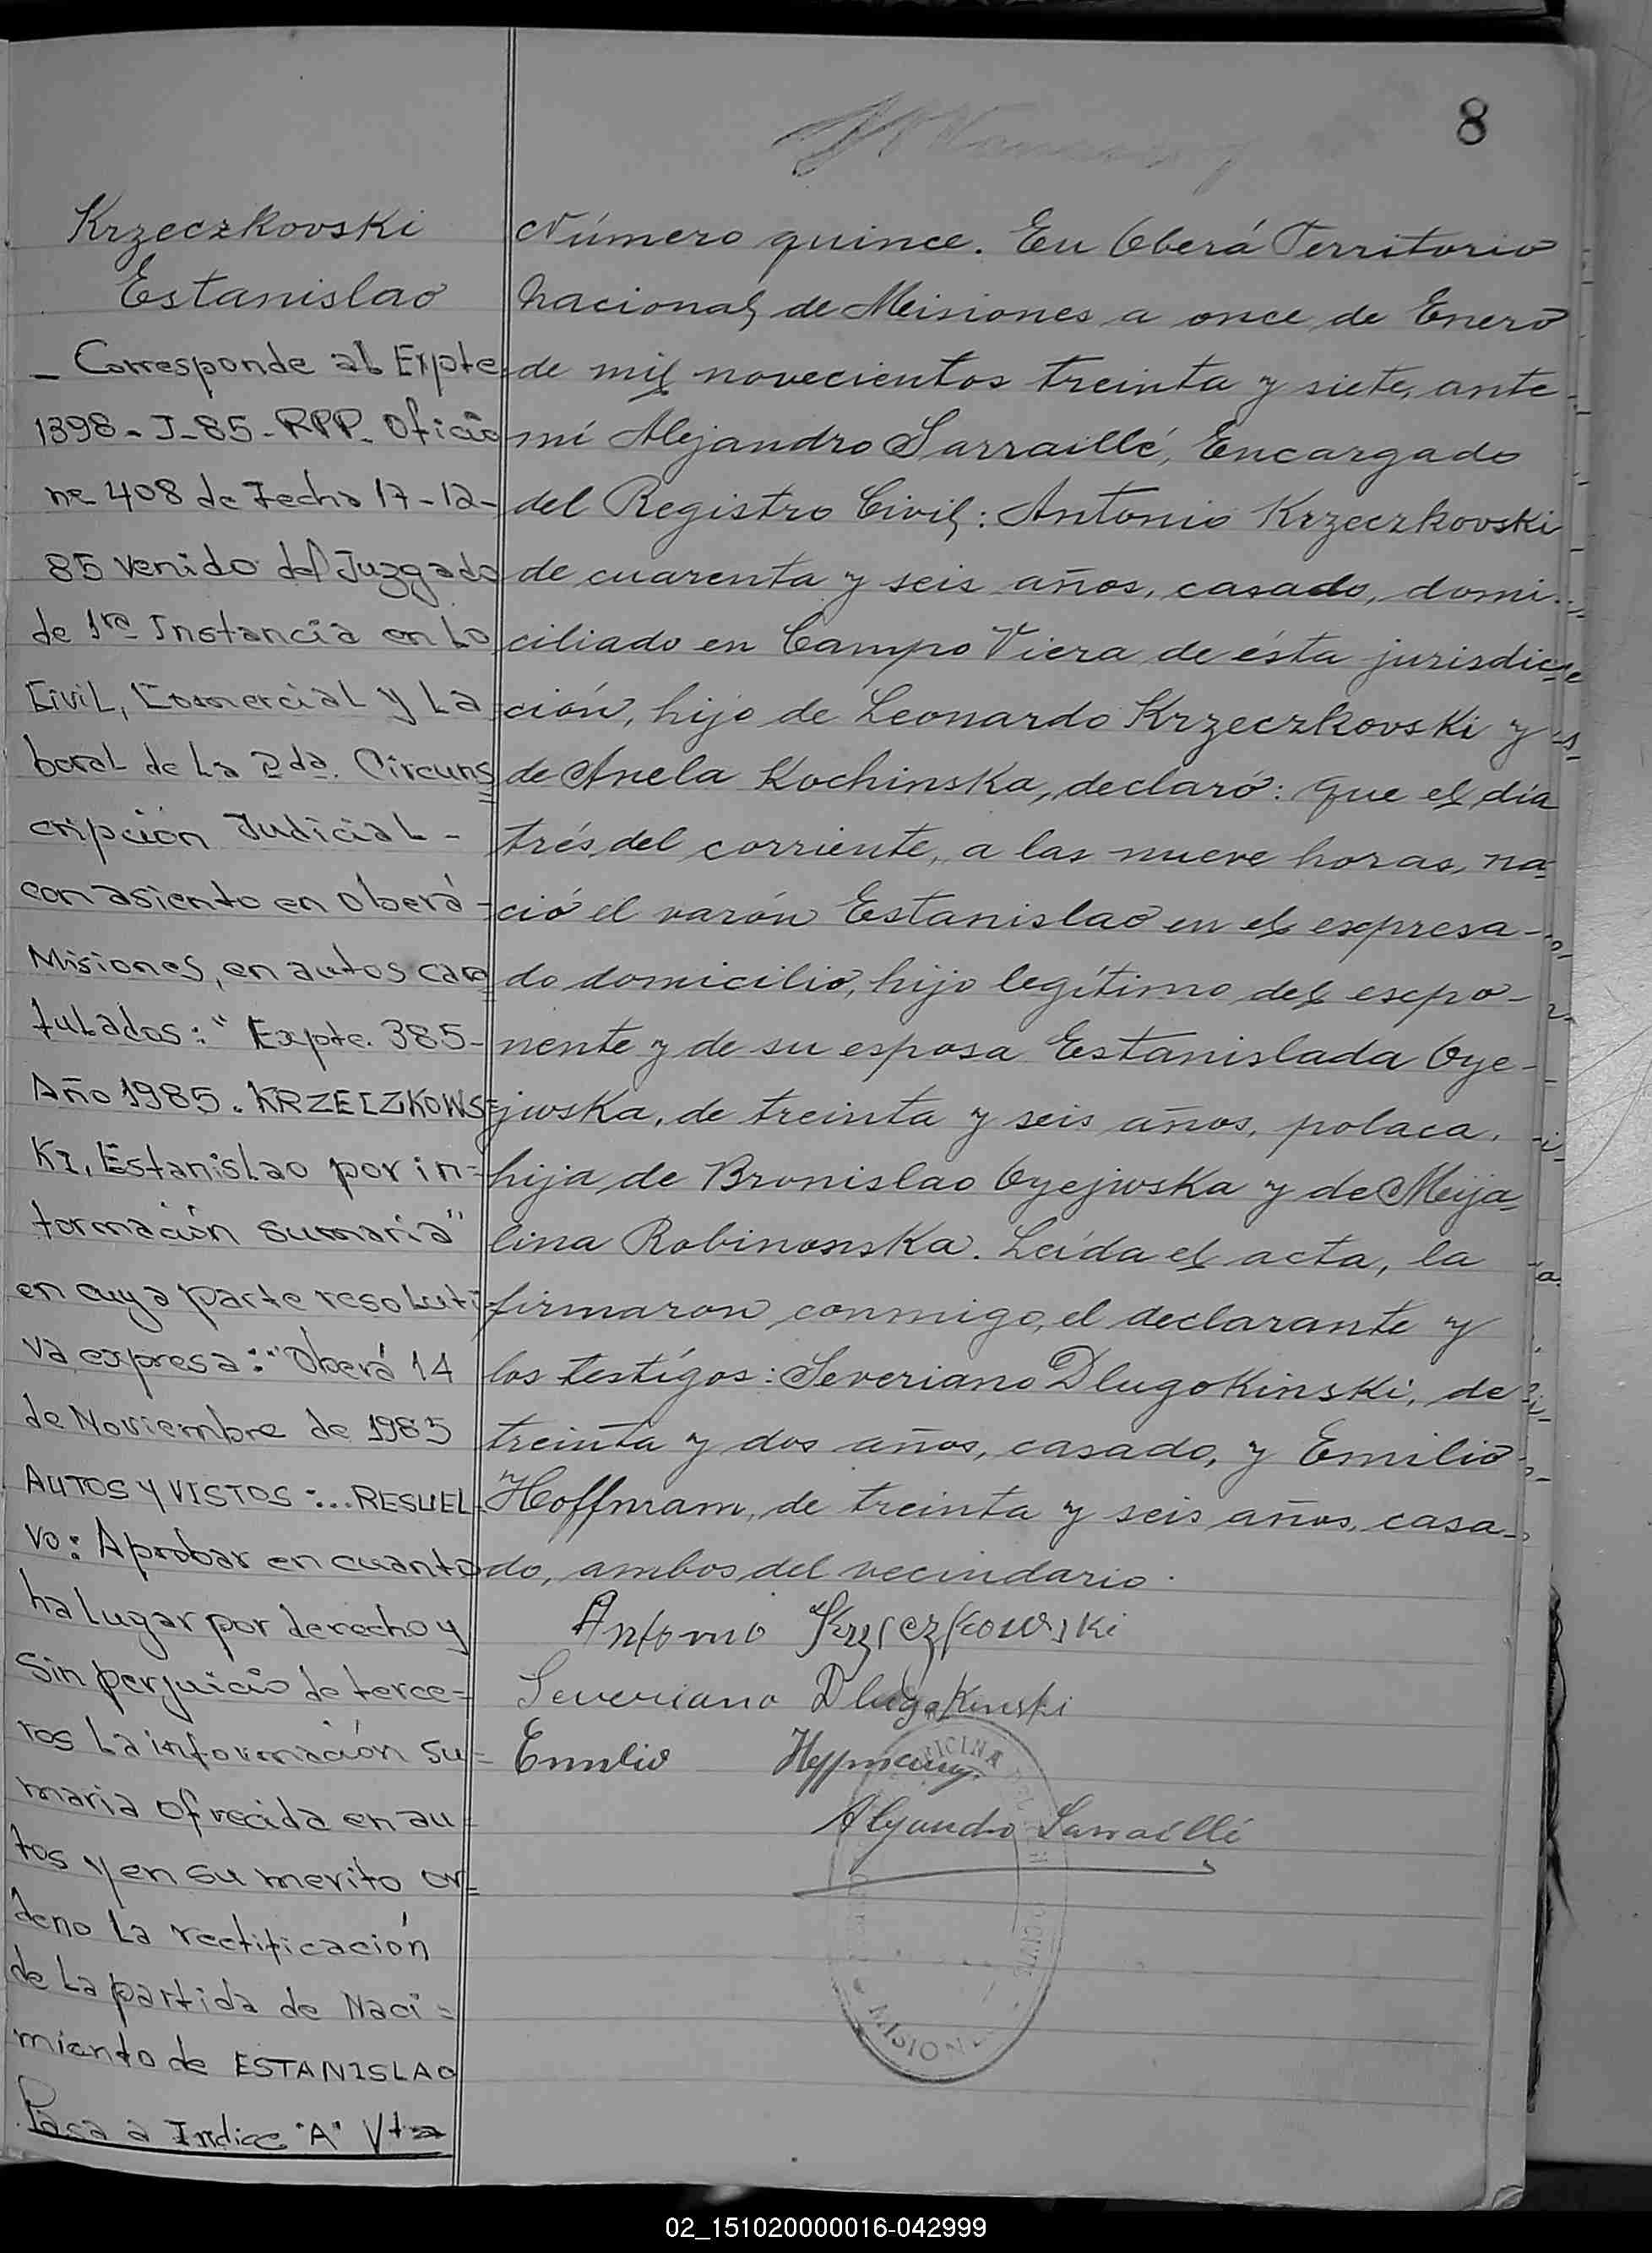 8
Krzeczkovski
Estanislao
_ Corresponde al Expte
1398-J-85-RPP. Oficio
nº 408 de Fecha 17-12-
85 venido del Juzgado
de 1ra Instancia en Lo
Civil, Comercial y La
boral de La 2da. Circuns
cripción Judicial -
con asiento en Oberá -
Misiones, en autos cara
tulados: "Expte. 385-
Año 1985. KRZECZKOWS=
KI, Estanislao por in=
formación sumaria"
en cuya parte resoluti
va expresa: "Oberá 14
de Noviembre de 1985
AUTOS Y VISTOS:... RESUEL-
vo: Aprobar en cuanto
ha lugar por derecho y
Sin perjuicio de terce=
ros La información su=
maria ofrecida en au=
tos y en su merito or=
deno La rectificación
de La partida de Naci=
miento de ESTANISLAO
Pasa a Indice "A" Vta
Número quince. En Oberá Territorio
Nacional de Misiones a once de Enero
de mil novecientos treinta y siete, ante
mí Alejandro Sarraillé, Encargado
del Registro Civil: Antonio Krzeczkovski
de cuarenta y seis años, casado, domi-
ciliado en Campo Viera de ésta jurisdic-
ción, hijo de Leonardo Krzeczkovski y
de Anela Kochinska, declaró: que el día
trés del corriente, a las nueve horas, na-
ció el varón Estanislao en el expresa-
do domicilio, hijo legítimo del expo-
nente y de su esposa Estanislada Oye-
jwska, de treinta y seis años, polaca,
hija de Bronislao Oyejwska y de Mija-
lina Robinonska. Leída el acta, la
firmaron conmigo, el declarante y
los testígos: Severiano Dlugokinski, de
treinta y dos años, casado, y Emilio
Hoffmam, de treinta y seis años, casa-
do, ambos del vecindario.
Antonio Krzeczkowski
Severiano Dlugokinski
Emilio Hoffmann
Alejandro Sarraillé
OFICINA DEL CIVIL
MISIONES
02_151020000016-042999